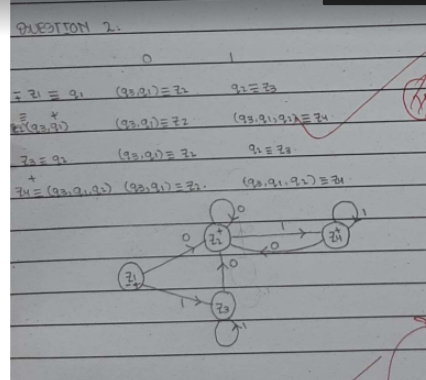 QUESTION 2.
0 1
∓ z1 ≡ q1 (q3,q1) ≡ z2 q2 ≡ z3
+
z2 (q3,q1) (q3,q1) ≡ z2 (q3,q1,q2) ≡ z4
z3 ≡ q2 (q3,q1) ≡ z2 q2 ≡ z3.
+
z4 ≡ (q3,q1,q2) (q3,q1) ≡ z2. (q3,q1,q2) ≡ z4
0
1
0 z2+ 1 z4+
0
z1 0
∓
1 z3
1